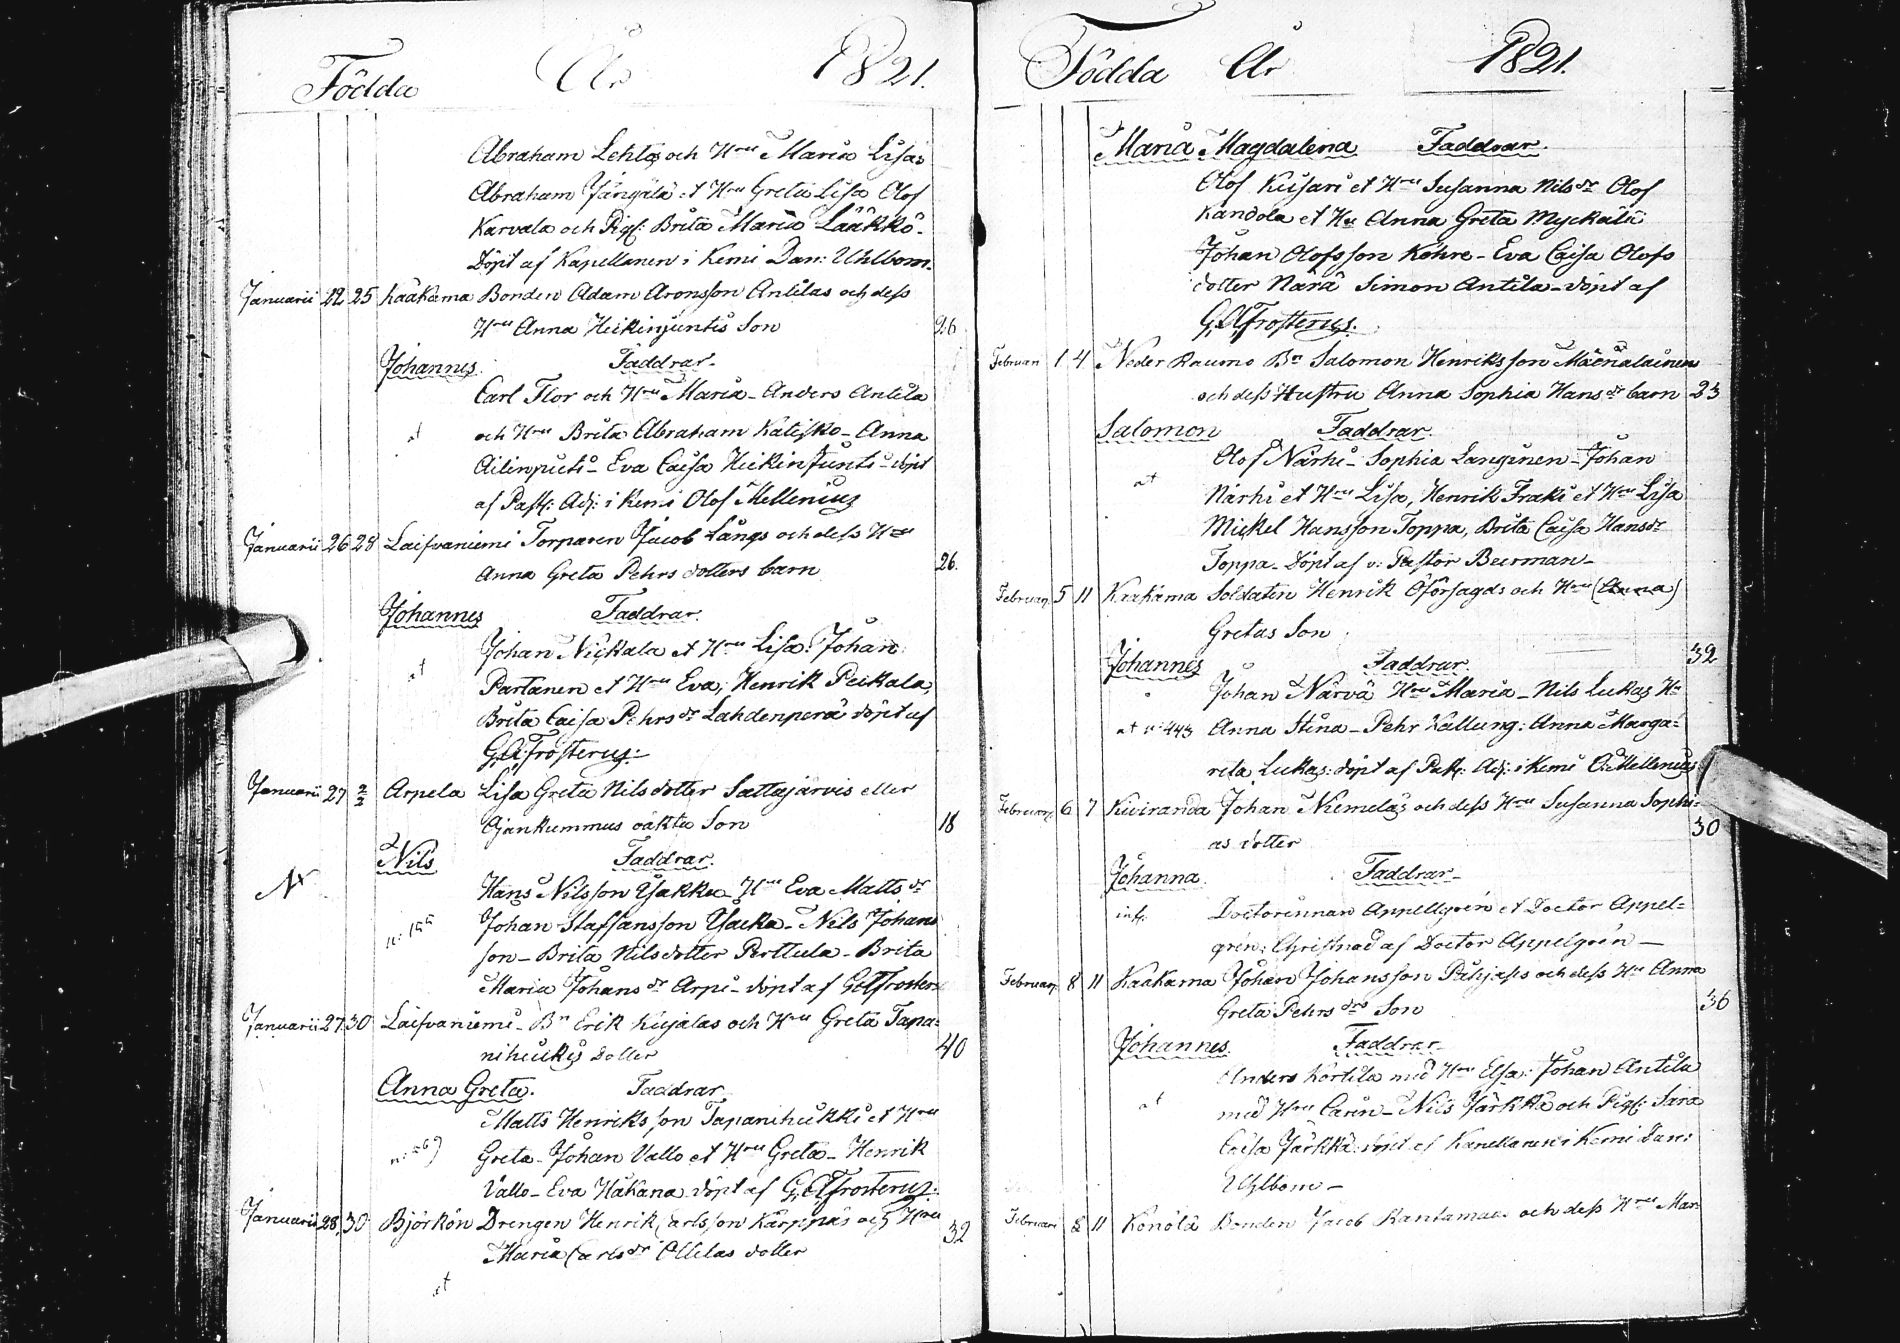 Födda År 1821.
Abraham Lehtos och Hru Maria Lisa;
Abraham Jängälä et Hru Greta Lisa Olof
Karvala och Pig: Brita Maria Lääkkö-
Döpt af Kapellanen i Kemi Dan: Uhlbom.
Januarii 22 25 Kaakama Bonden Adam Aronsson Antilas och dess
Hru Anna Heikinjuntis Son 26
Johannes. Faddrar.
Carl Flor och Hru Maria - Anders Antila
at och Hru Brita Abraham Katisko - Anna
Ailinpieti - Eva Caisa Heikinjunti - döpt
af Past: Adj: i Kemi Olof Mellenius
Januarii 26 28 Laifvaniemi Torparen Jacob Långs och dess Hru
Anna Greta Pehrs dotters barn 26.
Johannes Faddrar.
Johan Nickala et Hru Lisa: Johan
at Partanen et Hru Eva; Henrik Peikala,
Brita Caisa Pehrs dr Lahdenperä döpt af
G.A. Frosterus.
Januarii 27 2/2 Arpela Lisa Greta Nilsdotter Sattajärvis eller
Ajankummus oäkta Son 18
Nils Faddrar.
Hans Nilsson Yakku Hru Eva Matts dr
Johan Staffansson Yacka - Nils Johans
son - Brita Nilsdotter Perttula - Brita
Maria Johans dr Arpi - döpt af G.A. Frosterus
Januarii 27 30 Laifvaniemi - Bn Erik Kujalas och Hru Greta Tapa=
nihuikis dotter 40
Anna Greta. Faddrar
Matts Henriksson Tapanihukki et Hru
Greta - Johan Vallo et Hru Greta - Henrik
Vallo - Eva Hakana döpt af G.A. Frosterus.
Januarii 28 30 Björkön Drengen Henrik Carlsson Kärppäs och Hru
Maria Carls dr Ollilas dotter 32
at
Födda År 1821.
Maria Magdalena Faddrar.
Olof Kuisari et Hru Susanna Nils dr Olof
Kandola et Hu Anna Greta Myckälä
Johan Olofsson Köhre - Eva Caisa Olofs
dotter Närä Simon Antila - döpt af
G.A. Frosterus.
Februari 1 4 Neder Raumo Bn Salomon Henriksson Mäenalainen
och dess Hustru Anna Sophia Hans dr barn 23
Salomon Faddrar.
Olof Närhi - Sophia Langinen - Johan
at Närhi et Hru Lisa, Henrik Fraki et Hru Lisa
Mickel Hansson Toppa, Brita Caisa Hansdr
Toppa - Döpt af v: Pastor Beerman -
Februari 5 11 Kaakama Soldaten Henrik Oförsagds och Hru (Anna)
Gretas Son
Johannes Faddrar. 32
Johan Närvä Hru Maria - Nils Lukas Hu
at n: 443 Anna Stina - Pehr Kallung: Anna Marga=
reta Lukas: döpt af Past: Adj: i Kemi O: Mellenius
Februari 6 7 Kiviranda Johan Niemelas och dess Hru Susanna Sophi=
as dotter 30
Johanna Faddrar -
inf: Doctorinnan Appellgrén et Doctor Appel=
grén: Christnad af Doctor Appelgrén -
Februari 8 11 Kaakama Johan Johansson Pahjass och dess Hu Anna
Greta Pehrs drs Son 36
Johannes. Faddrar -
Anders Körtila med Hru Elsa: Johan Antila
at med Hru Carin - Nils Järkkä och Pig: Sara
Caisa Järkkä: döpt af Kapellanen i Kemi Dan:
Uhlbom -
Februari 8 11 Könölä Bonden Jacob Rantamaa och dess Hru Mari